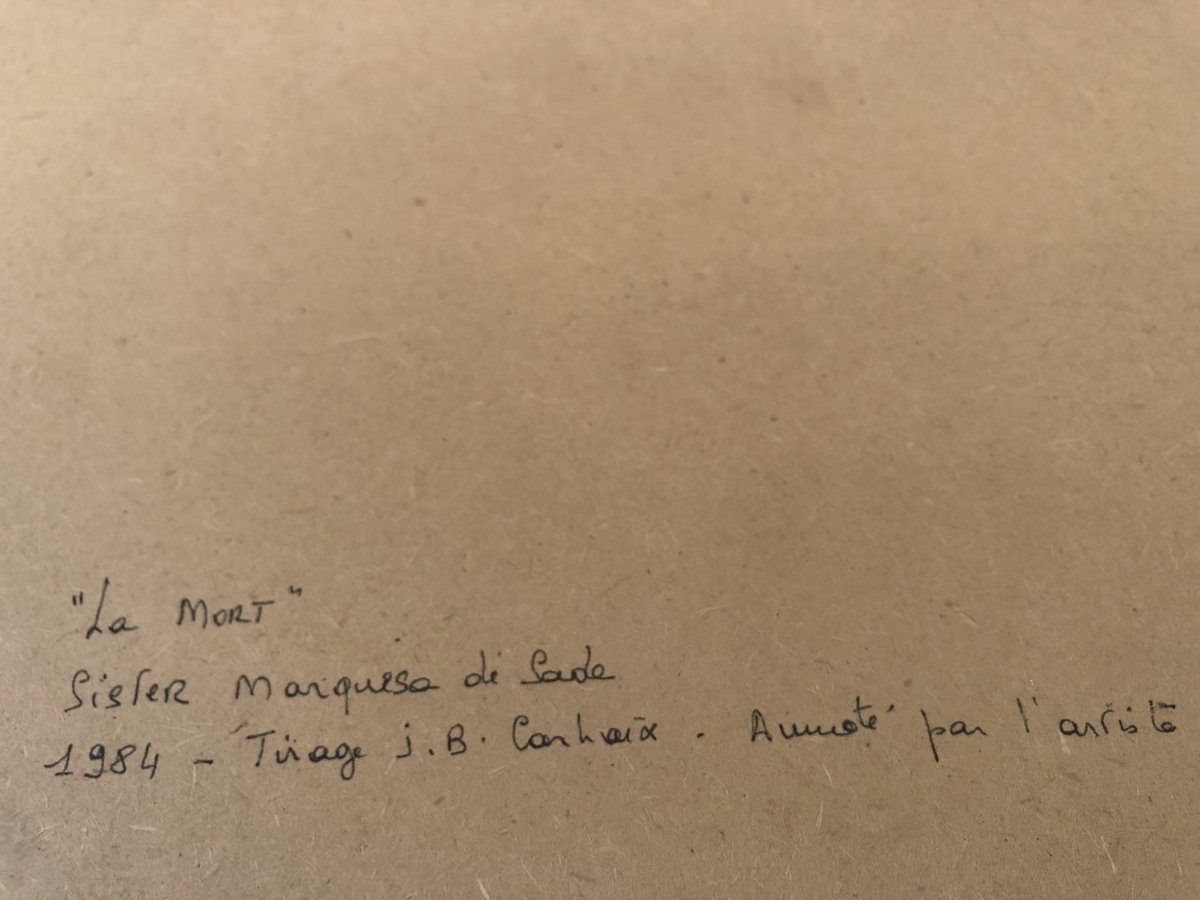 "La MORT"
Sister Marquesa di Sade
1984 - Tirage J.B. Carhaix. Annoté par l'artiste